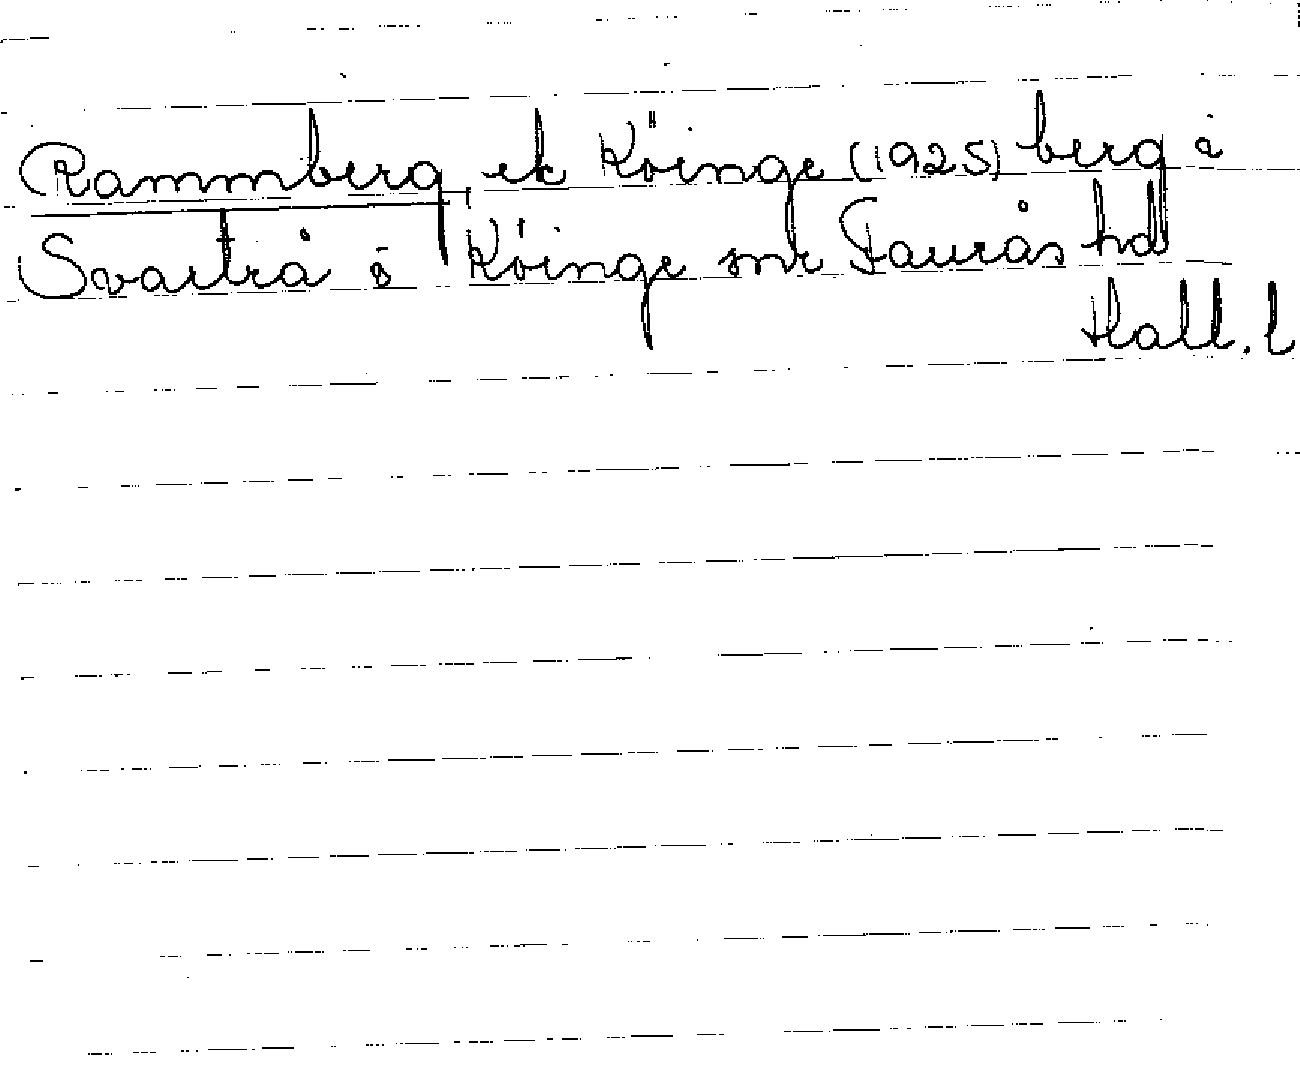 Rammberg, ek Köinge (1925) berg i
Svartrå i Köinge snr Faurås hd
Hall. l